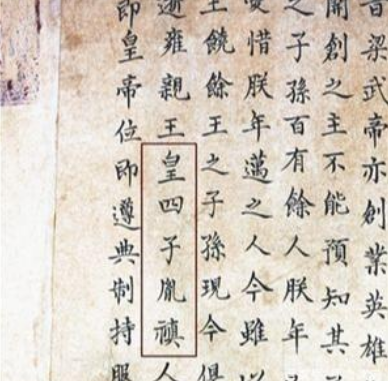 昔梁武帝亦創業英雄
開創之主不能預知其
之子孫百有餘人朕年
愛惜朕年邁之人今雖
王饒餘王之子孫現今俱
逝雍親王皇四子胤禛人
即皇帝位即遵典制持服